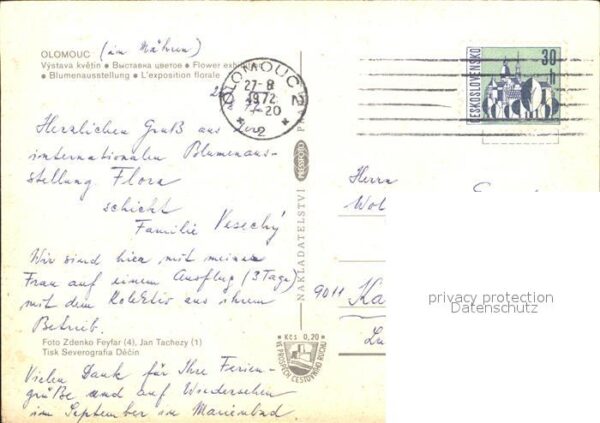 OLOMOUC (in Mähren)
Výstava květin • Выставка цветов • Flower exh
• Blumenausstellung • L'exposition florale
OLOMOUC 2
27-8
1972
-20
2
ČESKOSLOVENSKO
30
h
Herzlichen Gruß aus der
internationalen Blumenaus-
stellung Flora
schickt
Familie Vesechý
Wir sind hier mit meiner
Frau auf einem Ausflug (3 Tage)
mit dem Kolektiv aus ihrem
Betrieb.
Foto Zdenko Feyfar (4), Jan Tachezy (1)
Tisk Severografia Děčín
Vielen Dank für Ihre Ferien-
grüße und auf Wiedersehen
im September in Marienbad.
NAKLADATELSTVÍ PRESSFOTO
Kčs 0,20
VE PROSPĚCH CESTOVNÍHO RUCHU
Herrn
9011
privacy protection
Datenschutz